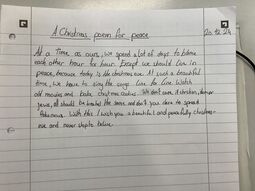 A Christmas poem for peace
20.12.24
At a time as ours, we spend a lot of days to blame
each other hour for hour. Except we should live in
peace, because today is the christmas eve. At such a beautiful
time, we have to sing the songs line for line. Watch
old movies and bake christmas cookies. We don't care if christian,
jews, all should be treated the same and don't you dare to spread
With this I wish you a beautiful and peacefully christmas
eve and never stop to believe